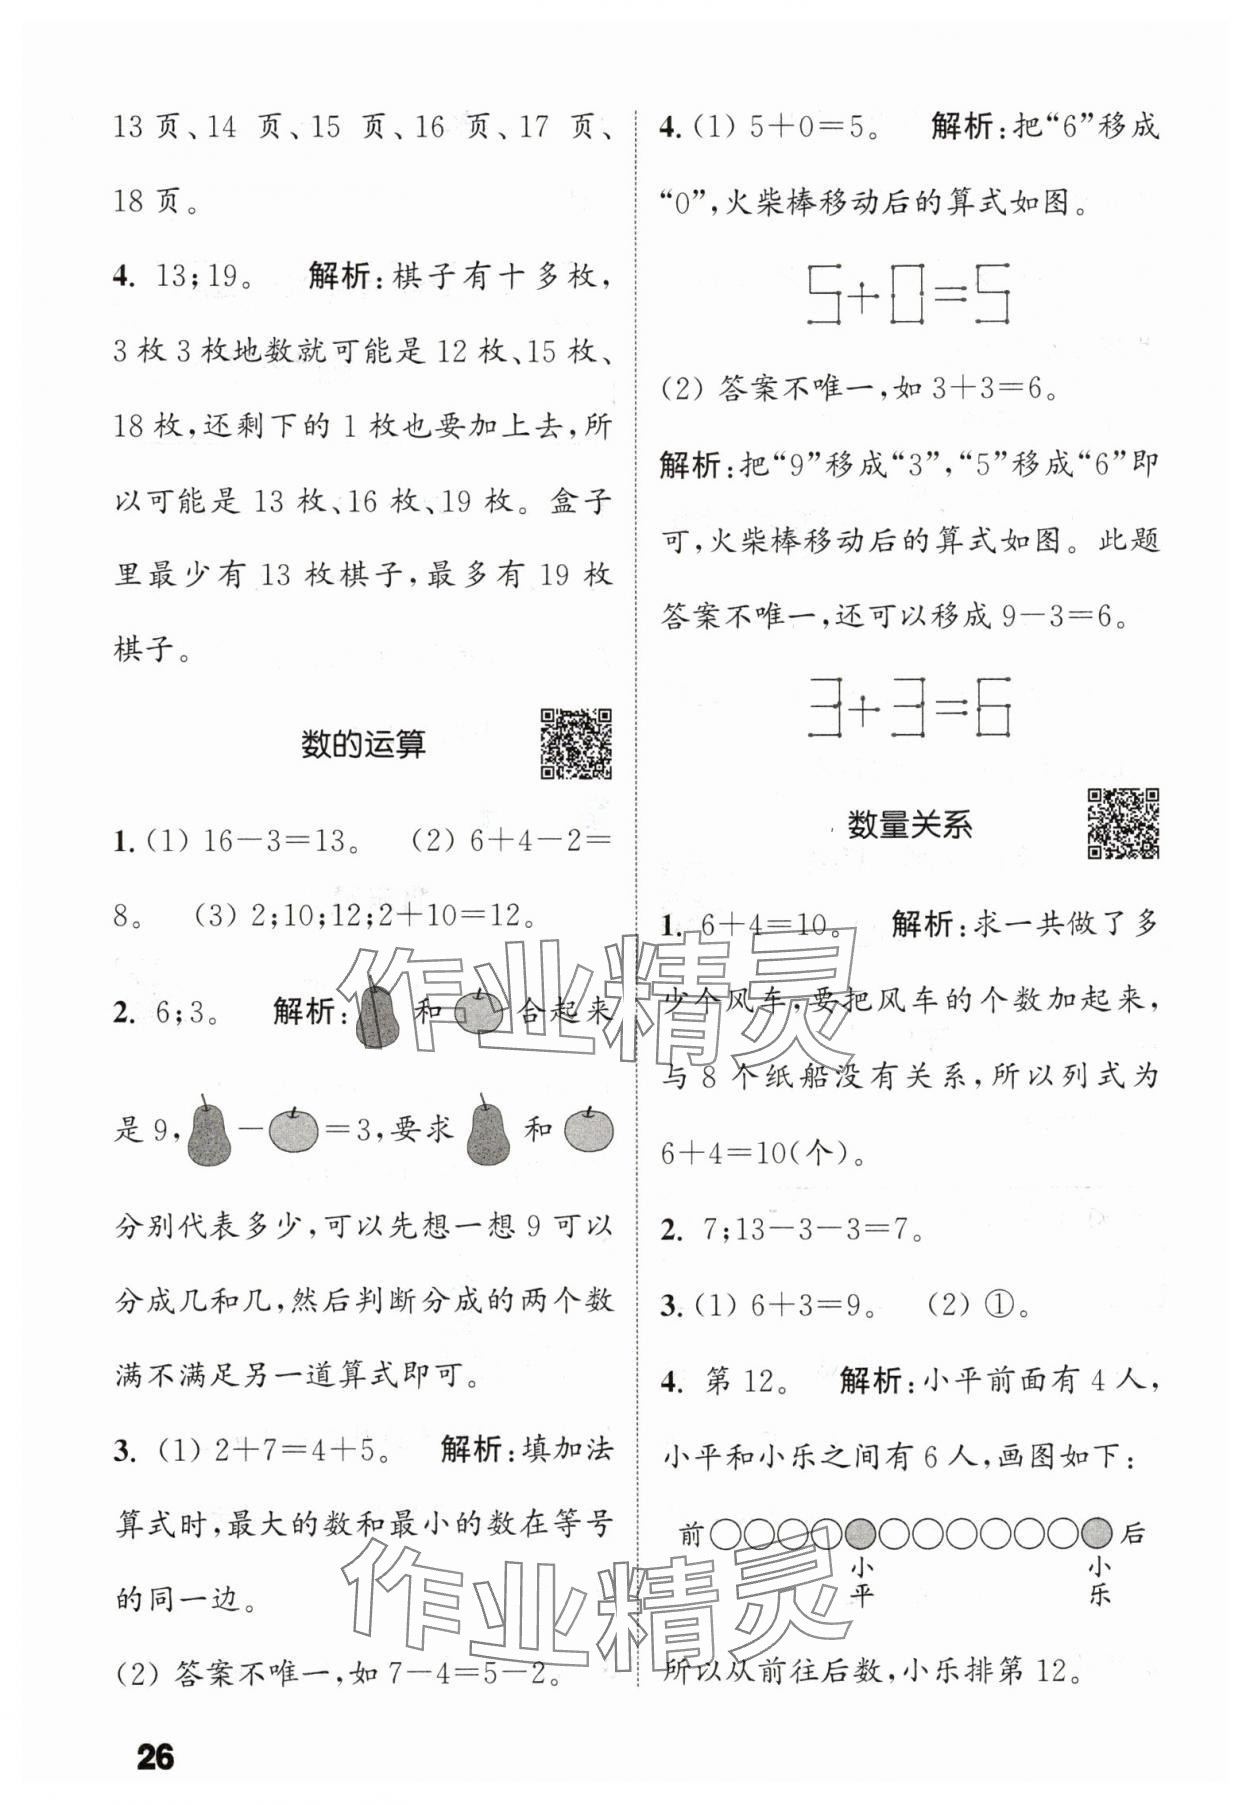 13 页、14 页、15 页、16 页、17 页、
18 页。
4. 13;19。 解析:棋子有十多枚,
3 枚 3 枚地数就可能是 12 枚、15 枚、
18 枚,还剩下的 1 枚也要加上去,所
以可能是 13 枚、16 枚、19 枚。盒子
里最少有 13 枚棋子,最多有 19 枚
棋子。
数的运算
1. (1) 16－3＝13。 (2) 6＋4－2＝
8。 (3) 2;10;12;2＋10＝12。
2. 6;3。 解析: 和 合起来
是 9, － ＝3,要求 和
分别代表多少,可以先想一想 9 可以
分成几和几,然后判断分成的两个数
满不满足另一道算式即可。
3. (1) 2＋7＝4＋5。 解析:填加法
算式时,最大的数和最小的数在等号
的同一边。
(2) 答案不唯一,如 7－4＝5－2。
26
4. (1) 5＋0＝5。 解析:把“6”移成
“0”,火柴棒移动后的算式如图。
5＋0＝5
(2) 答案不唯一,如 3＋3＝6。
解析:把“9”移成“3”,“5”移成“6”即
可,火柴棒移动后的算式如图。此题
答案不唯一,还可以移成 9－3＝6。
3＋3＝6
数量关系
1. 6＋4＝10。 解析:求一共做了多
少个风车,要把风车的个数加起来,
与 8 个纸船没有关系,所以列式为
6＋4＝10(个)。
2. 7;13－3－3＝7。
3. (1) 6＋3＝9。 (2) ①。
4. 第 12。 解析:小平前面有 4 人,
小平和小乐之间有 6 人,画图如下:
前 后
小平 小乐
所以从前往后数,小乐排第 12。
作业精灵
作业精灵